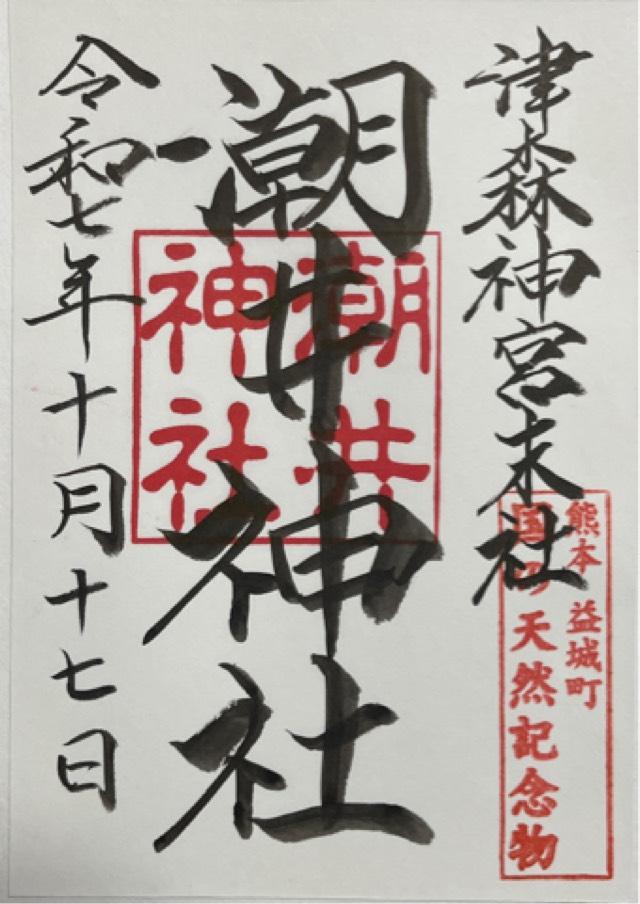 津森神宮末社
熊本 益城町
国の天然記念物
潮井神社
潮井
神社
令和七年十月十七日